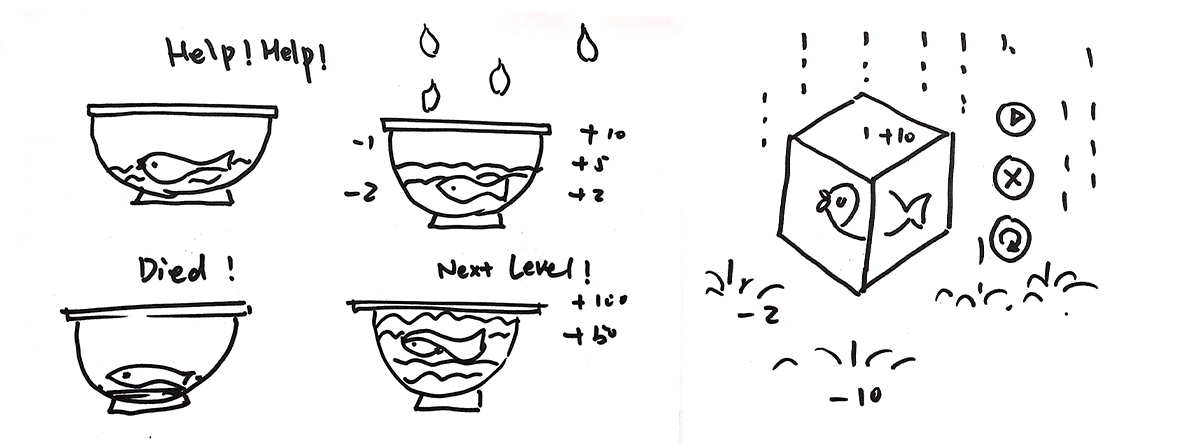 Help! Help!
-1
-2
+10
+5
+2
Died!
Next Level!
+100
+50
1 +10
-2
-10